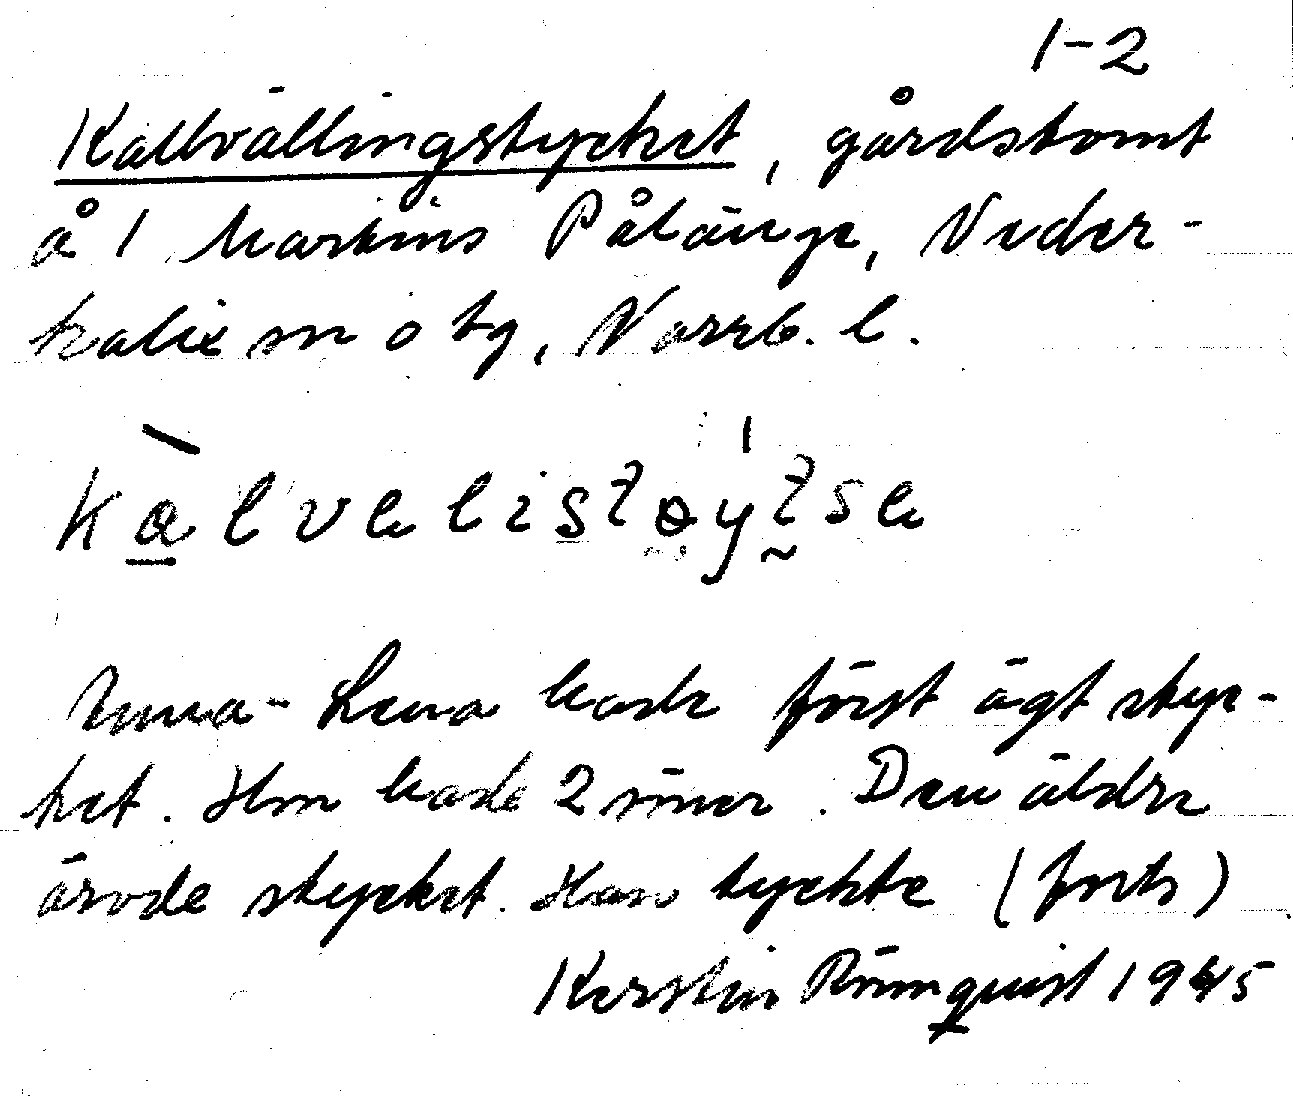 1-2
Kallvällingstycket, gårdstomt
å 1 Martins Pålänge, Neder-
kalix sn o tg, Norrb. l.
kalvelistøytse
Anna-Lena hade först ägt styc-
ket. Hon hade 2 söner. Den äldre
ärvde stycket. Han tyckte (forts)
Kerstin Rönnquist 1945